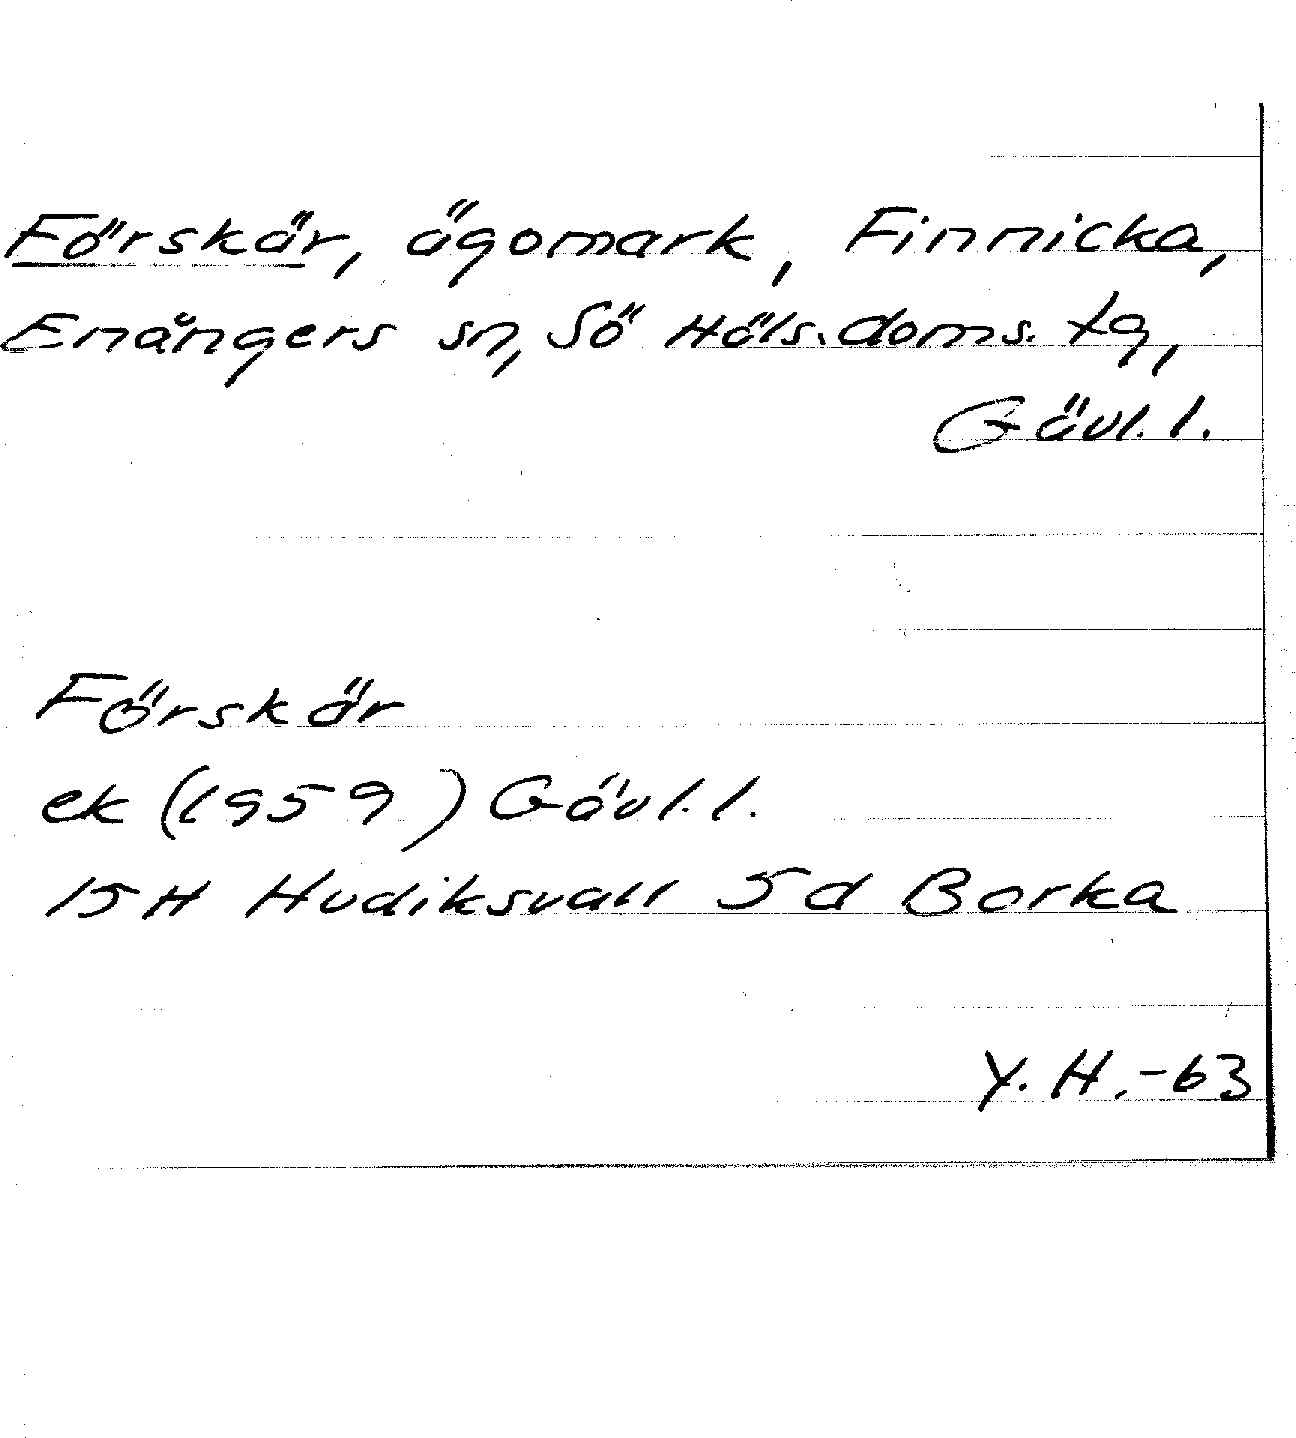 Förskär, ägomark, Finnicka,
Enångers sn, Sö Häls. doms. tg,
Gävl. l.
Förskär
ek (1959) Gävl. l.
15H Hudiksvall 5d Borka
Y. H. -63